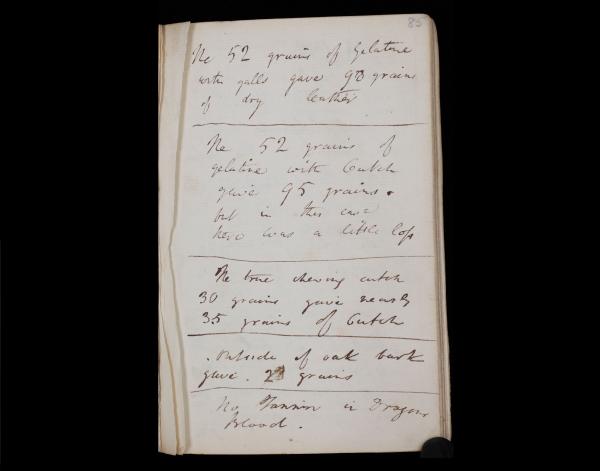 85
The 52 grains of Gelatine
with galls gave 98 grains
of dry leather
The 52 grains of
gelatine with Cutch
gave 95 grains.
but in this case
there was a little loss
The true chewing cutch
30 grains gave nearly
35 grains of Cutch
. outside of oak bark
gave . grains
No Tannin in Dragons
Blood .